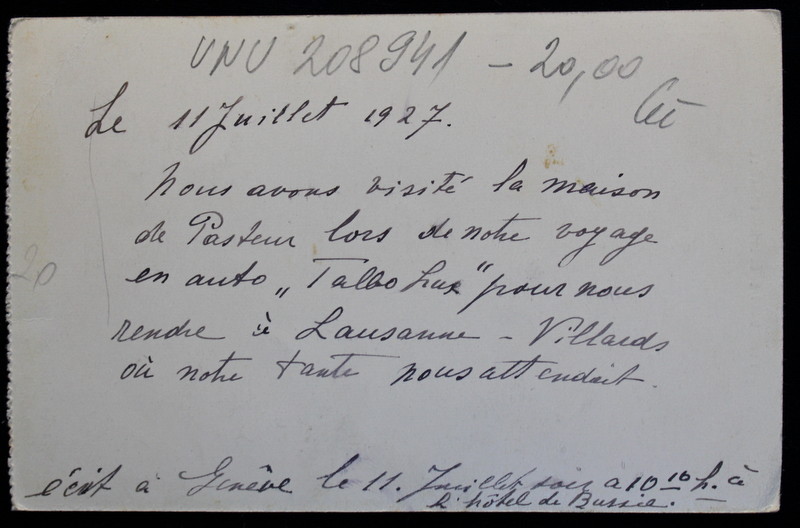 UNU 208941 – 20,00
Le 11 Juillet 1927.
Nous avons visité la maison
de Pasteur lors de notre voyage
20
en auto „Talbo Lux" pour nous
rendre à Lausanne – Villards
où notre tante nous attendait.
écrit à Genêve le 11. Juillet soir à 10 10 h. à
l'hôtel de Bussie.